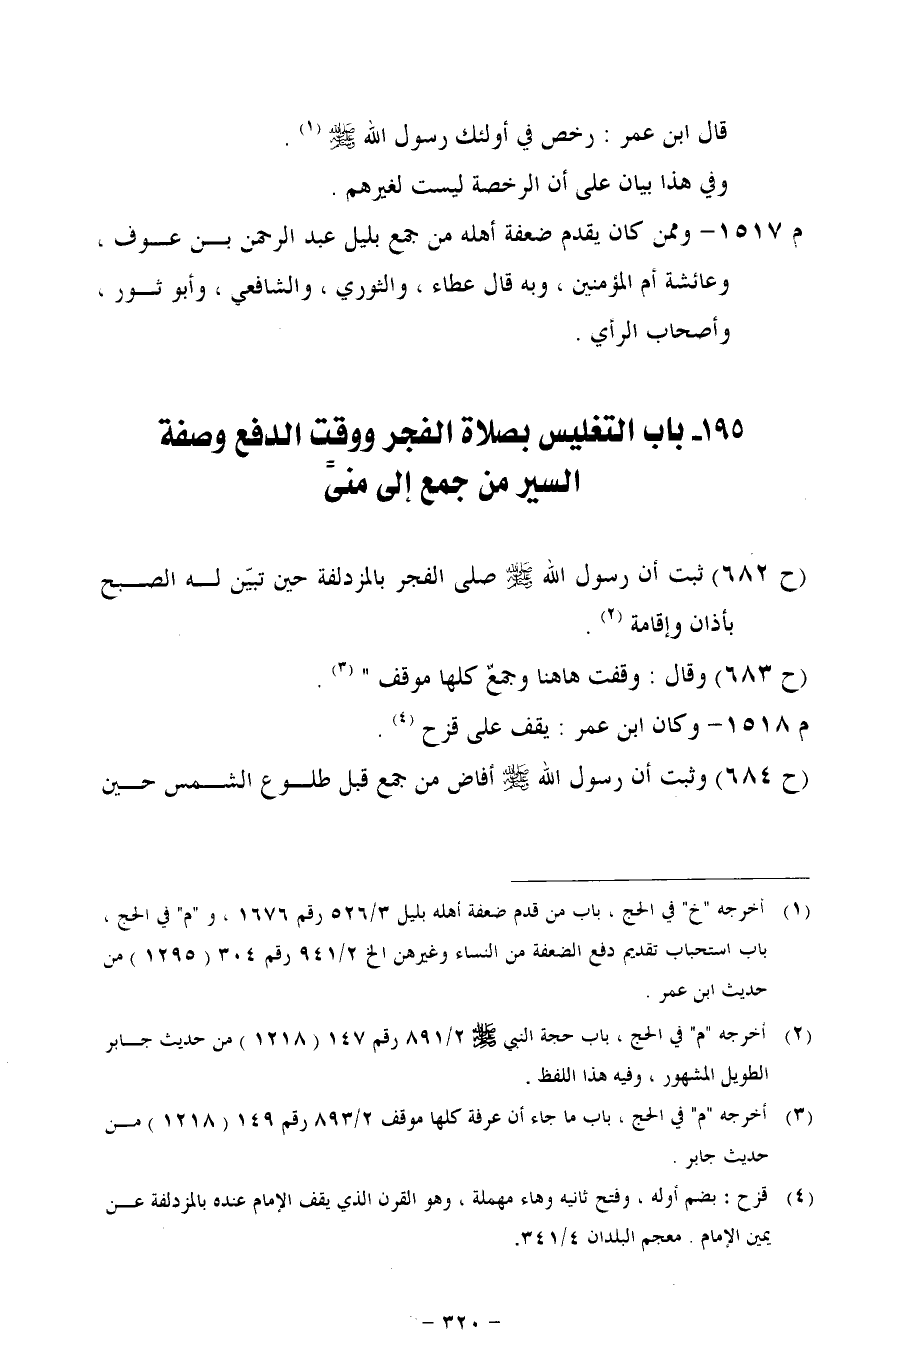 قال ابن عمر : رخص في أولئك رسول الله ﷺ (١) .
وفي هذا بيان على أن الرخصة ليست لغيرهم .
م ١٥١٧ – وممن كان يقدم ضعفة أهله من جمع بليل عبد الرحمن بن عوف ،
وعائشة أم المؤمنين ، وبه قال عطاء ، والثوري ، والشافعي ، وأبو ثور ،
وأصحاب الرأي .
١٩٥ـ باب التغليس بصلاة الفجر ووقت الدفع وصفة
السير من جمع إلى منىً
(ح ٦٨٢) ثبت أن رسول الله ﷺ صلى الفجر بالمزدلفة حين تبيّن له الصبح
بأذان وإقامة (٢) .
(ح ٦٨٣) وقال : وقفت هاهنا وجمعٌ كلها موقف " (٣) .
م ١٥١٨ – وكان ابن عمر : يقف على قزح (٤) .
(ح ٦٨٤) وثبت أن رسول الله ﷺ أفاض من جمع قبل طلوع الشمس حين
(١) أخرجه "خ" في الحج ، باب من قدم ضعفة أهله بليل ٥٢٦/٣ رقم ١٦٧٦ ، و "م" في الحج ،
باب استحباب تقديم دفع الضعفة من النساء وغيرهن الخ ٩٤١/٢ رقم ٣٠٤ ( ١٢٩٥ ) من
حديث ابن عمر .
(٢) أخرجه "م" في الحج ، باب حجة النبي ﷺ ٨٩١/٢ رقم ١٤٧ ( ١٢١٨ ) من حديث جابر
الطويل المشهور ، وفيه هذا اللفظ .
(٣) أخرجه "م" في الحج ، باب ما جاء أن عرفة كلها موقف ٨٩٣/٢ رقم ١٤٩ ( ١٢١٨ ) من
حديث جابر .
(٤) قزح : بضم أوله ، وفتح ثانيه وهاء مهملة ، وهو القرن الذي يقف الإمام عنده بالمزدلفة عن
يمين الإمام . معجم البلدان ٣٤١/٤.
– ٣٢٠ –